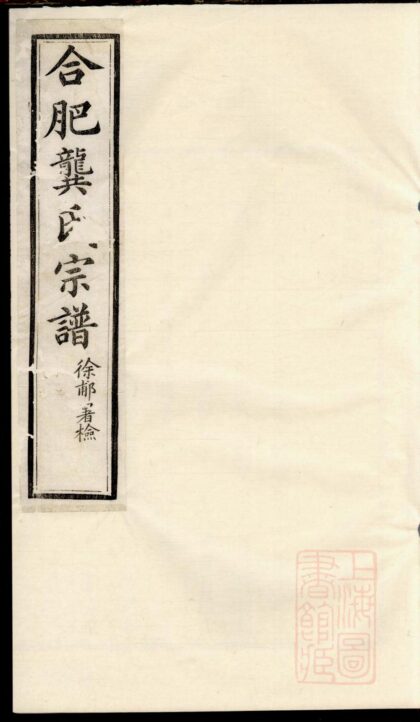 合肥龔氏宗譜
徐郙署檢
上海圖
書館藏